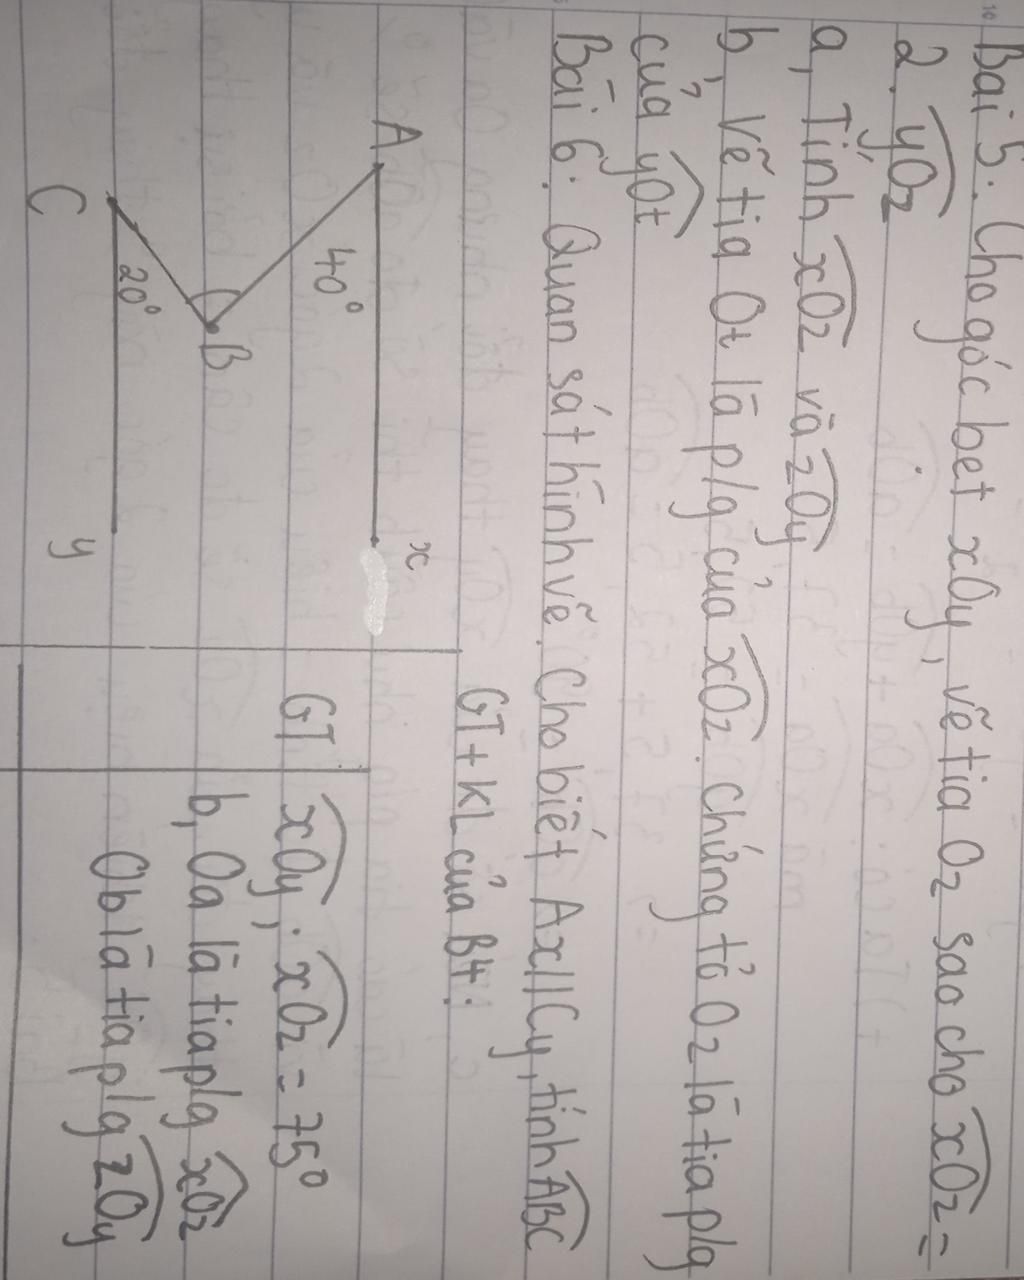 Bài 5: Cho góc bet xOy, vẽ tia Oz sao cho xOz =
2. yOz
a, Tính xOz và zOy
b, Vẽ tia Ot là p/g của xOz. Chứng tỏ Oz là tia p/g
của yOt
Bài 6: Quan sát hình vẽ. Cho biết Ax//Cy, tính ABC
GT + KL của B4:
A
x
40°
B
20°
C
y
GT
xOy; xOz = 75°
b, Oa là tia p/g xOz
Ob là tia p/g zOy